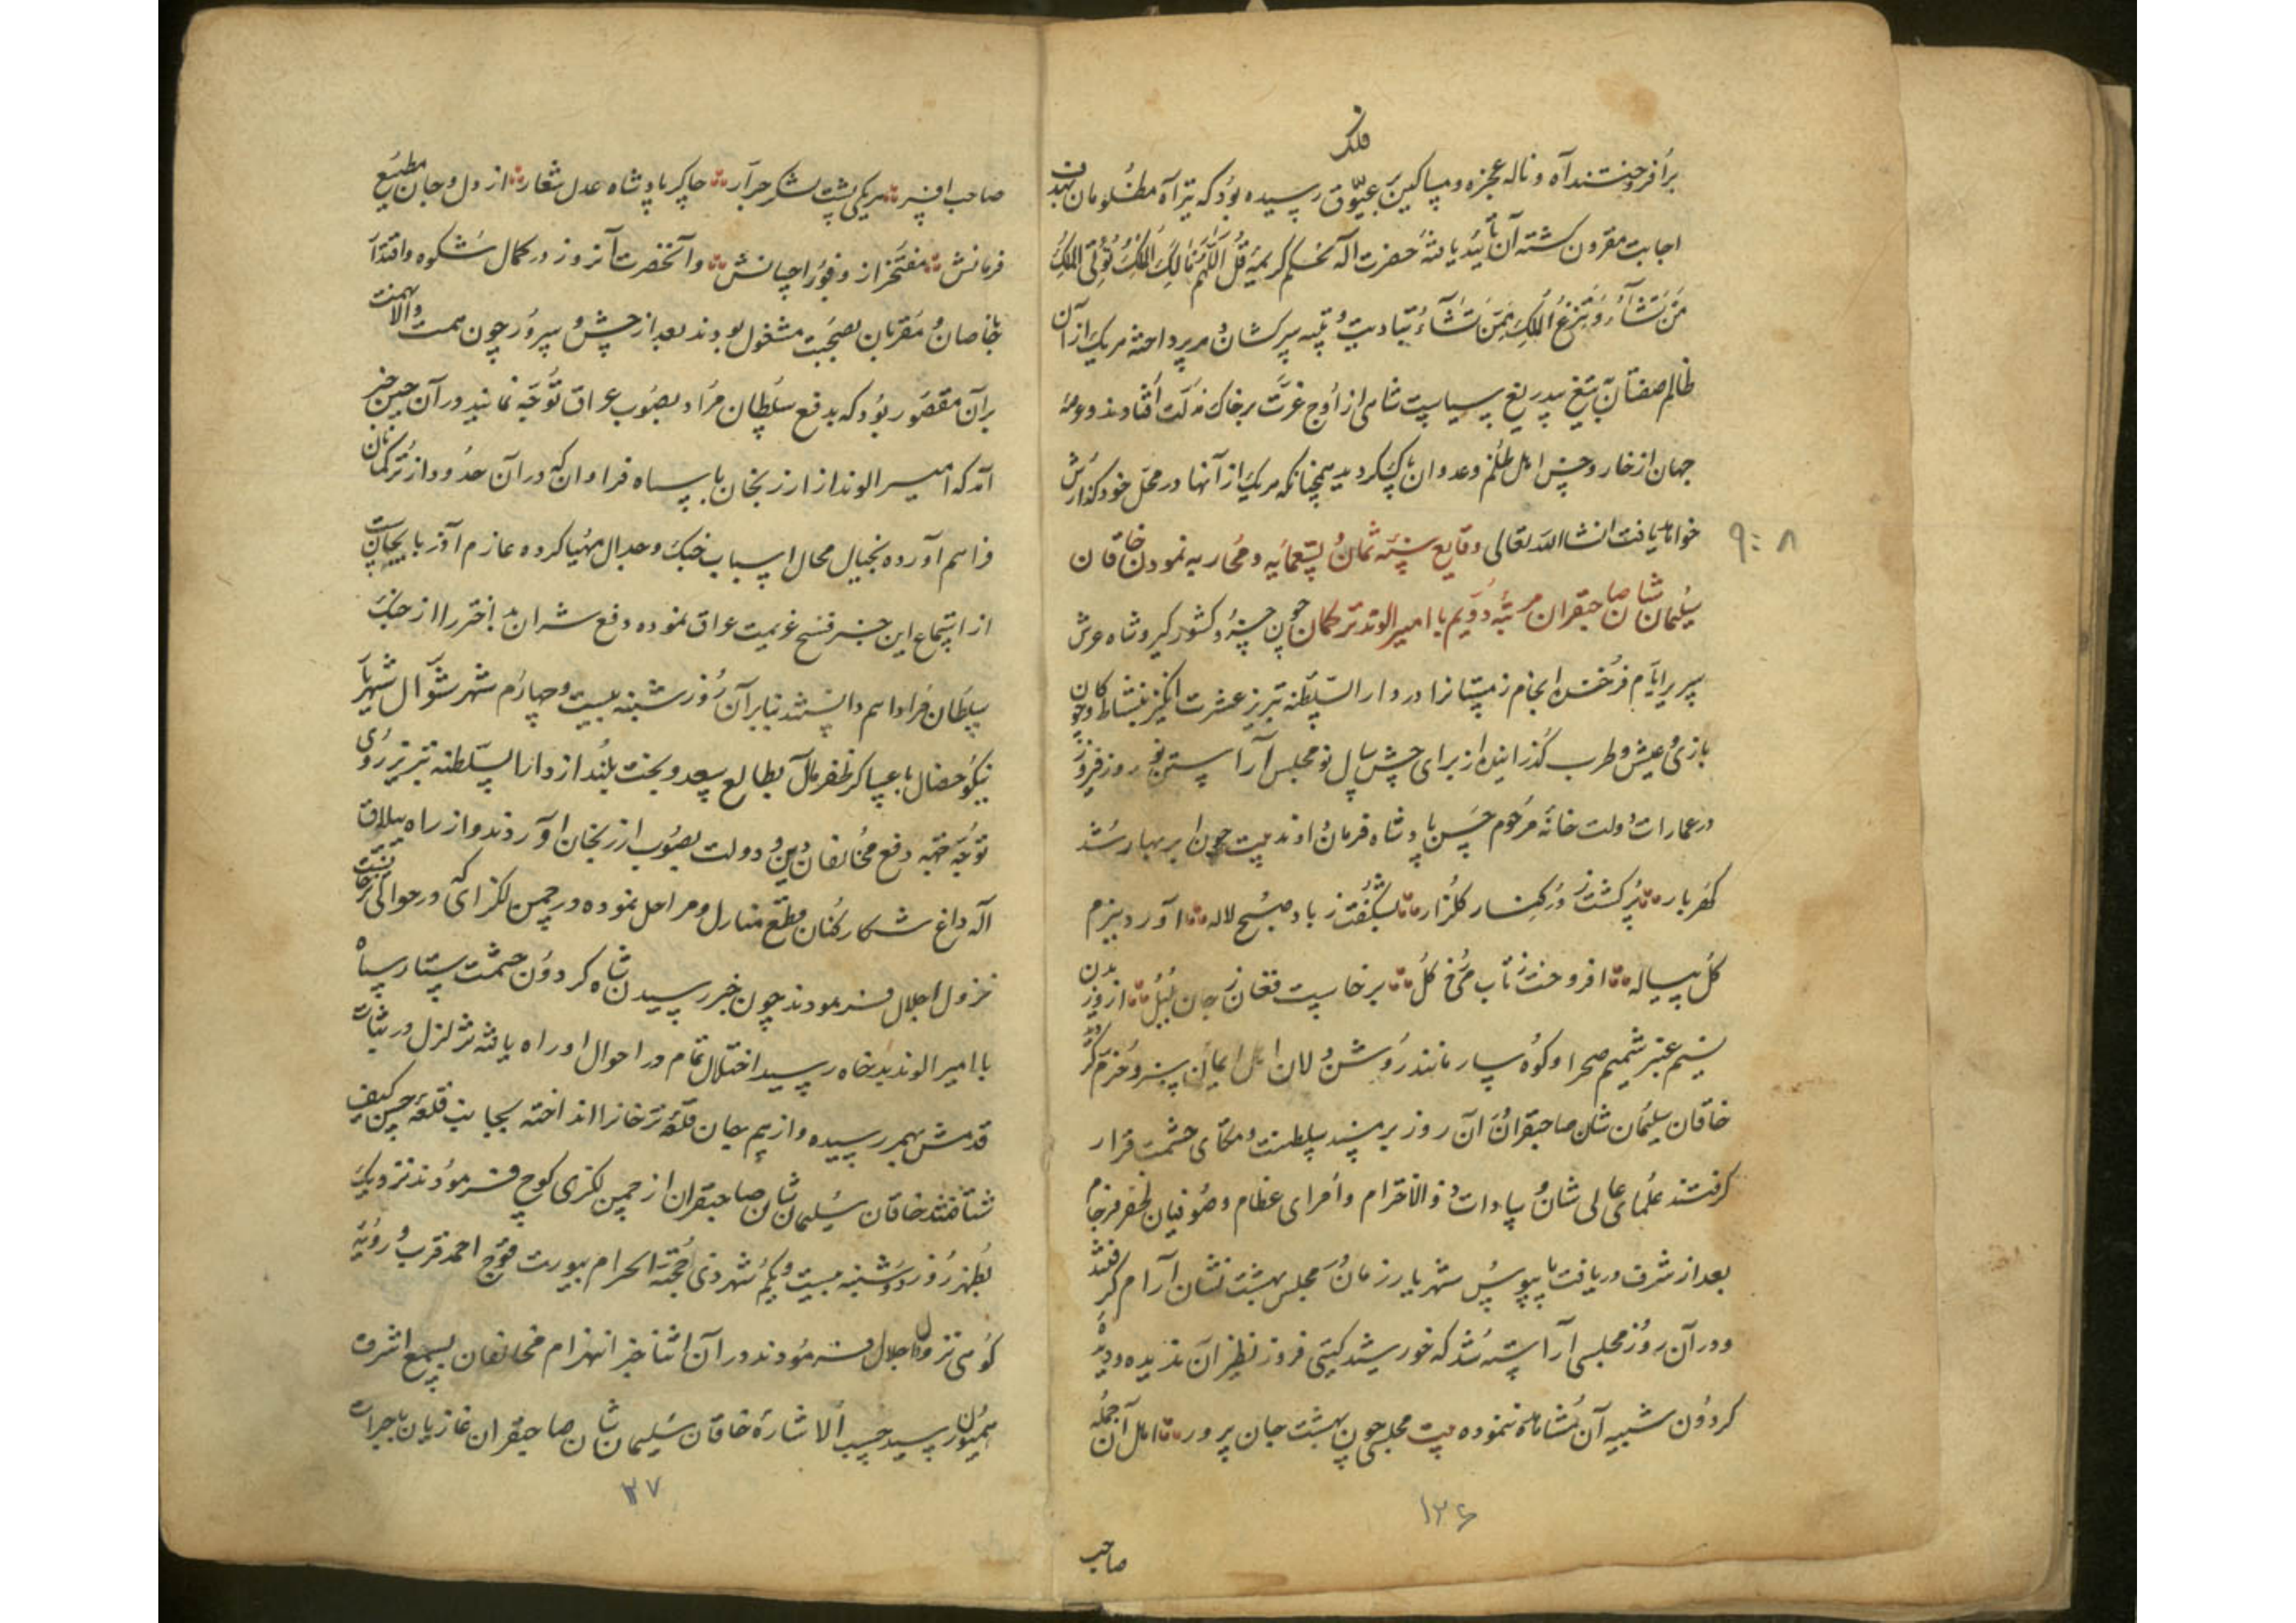 فلک
برافروختند آه و ناله عجزه و مساکین بعیّوق رسیده بود که تیر آه مظلومان بهدف
اجابت مقرون گشته آن تأیید یافتهٔ حضرت اله بحکم کریمهٔ قُلِ اللّٰهُمَّ مَالِکَ الْمُلْکِ تُؤْتِی الْمُلْکَ
مَنْ تَشَآءُ وَتَنْزِعُ الْمُلْکَ مِمَّنْ تَشَآءُ بتادیب و تنبیه سرکشان در پرداخته هریک از آن
ظالم صفتان بتیغ بیدریغ سیاست شاهی از اوج عزّت بر خاک مذلّت افتادند و عرصهٔ
جهان از خار و خس اهل ظلم و عدوان پاک گردید همچنانکه هریک از آنها در محل خود گذارش
خواهد یافت انشاالله تعالی وقایع سنه ثمان و تسعمائه و محاربه نمودن خاقان
سلیمان شان صاحبقران مرتبهٔ دویم با امیر الوند ترکمان چون خسرو کشورگیر و شاه عرش
سریر ایّام فرخنده انجام زمستانرا در دار السّلطنه تبریز عشرت انگیز بنشاط و چوکان
بازی و عیش و طرب گذرانیده از برای جشن سال نو مجلس آراستن نوروز فیروز
در عمارات دولت خانهٔ مرحوم حسن پادشاه فرمان دادند بیت چون ابر بهار شد
گهربار پر گشت ز در کنار گلزار بشکفت ز باد صبح لاله آورد ببزم
گل پیاله افروخت ز تاب می رخ گل برخاست فغان ز جان بلبل از وزیدن
نسیم عنبر شمیم صحرا و کوهسار مانند روشن دلان اهل ایمان سبز و خرّم گردید
خاقان سلیمان شان صاحبقران آن روز بر مسند سلطنت و متکای حشمت قرار
گرفتند علمای عالی شان و سادات ذو الاحترام و امرای عظام و صوفیان ظفر فرجام
بعد از شرف دریافت پابوس شهریار زمان در مجلس بهشت نشان آرام گرفتند
و در آن روز مجلسی آراسته شد که خورشید گیتی فروز نظیر آن ندیده و دیدهٔ
گردون شبیه آن مشاهده ننموده بیت مجلسی چون بهشت جان پرور اهل آن جمله
۹۰۸
۱۲۶
صاحب
صاحب افسر هریکی پشت لشکر جرّار چاکر پادشاه عدل شعار از دل و جان مطیع
فرمانش مفتخر از وفور احسانش و آنحضرت آنروز در کمال شکوه و اقتدار
با خاصان و مقربان بصحبت مشغول بودند بعد از جشن و سرور چون همت والا نهمت
بر آن مقصور بود که بدفع سلطان مراد بصوب عراق توجّه نمایند در آن حین خبر
آمد که امیر الوند از ارزنجان با سپاه فراوان که در آن حدود از ترکمانان
فراهم آورده بخیال محال اسباب جنک و جدال مهیا کرده عازم آذربایجانست
از استماع این خبر فسخ عزیمت عراق نموده دفع شر آن بد اختر را از جنک
سلطان مراد اهم دانستند بنابر آن روز شنبه بیست و چهارم شهر شوّال شهریار
نیکو خصال با عساکر ظفر مآل بطالع سعد و بخت بلند از دارا السّلطنه تبریز روی
توجّه جهته دفع مخالفان دین و دولت بصوب ارزنجان آوردند و از راه ییلاق
اله داغ شکار کنان قطع منازل و مراحل نموده در چمن لکزای که در حوالی ترجانست
نزول اجلال فرمودند چون خبر رسیدن شاه گردون حشمت ستاره سپاه
با امیر الوند بدخواه رسید اختلال تمام در احوال او راه یافته تزلزل در ثبات
قدمش بهم رسیده و از بیم جان قلعهٔ ترخانرا انداخته بجانب قلعهٔ حسن کیف
شتافتند خاقان سلیمان شان صاحبقران از چمن لکزی کوچ فرمودند نزدیک
بظهر روز دوشنبه بیست و یکم شهر ذی حجّة الحرام بیورت قوچ احمد قرب و رویهٔ
کومی نزول اجلال فرمودند در آن اثنا خبر انهزام مخالفان بسمع اشرف
همیون رسید حسب الاشارهٔ خاقان سلیمان شان صاحبقران غازیان با جرات
۲۷